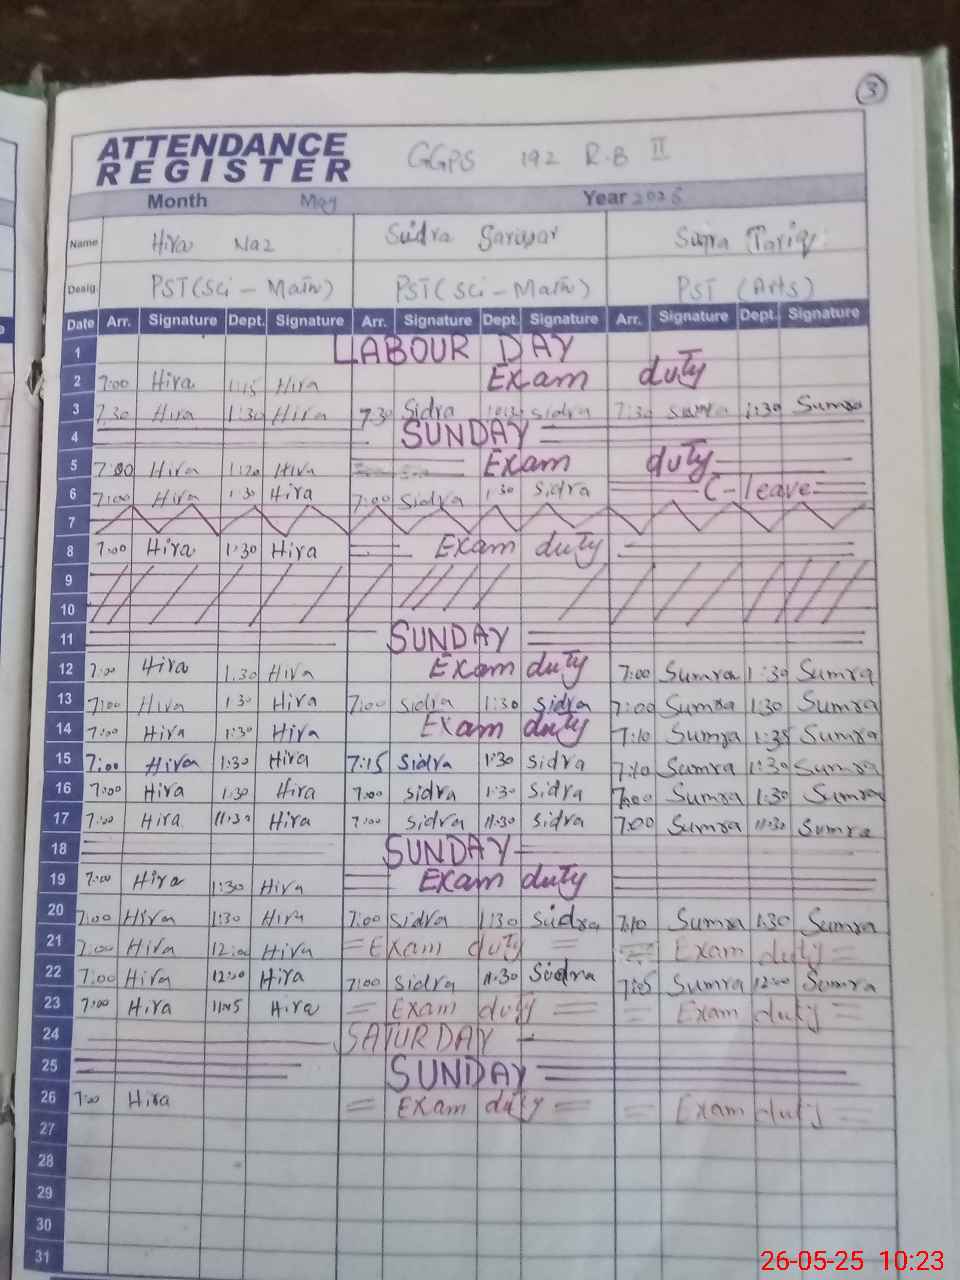 3
ATTENDANCE REGISTER GGPS 192 R.B II
Month May Year 2025
Name Hira Naz Sidra Sarwar Sumra Tariq
Desig. PST (Sci - Math) PST (Sci - Math) PST (Arts)
Date Arr. Signature Dept. Signature Arr. Signature Dept. Signature Arr. Signature Dept. Signature
1 LABOUR DAY
2 7:00 Hira 1:15 Hira Exam duty
3 7:30 Hira 1:30 Hira 7:30 Sidra sidra 7:30 Sumra 1:30 Sumra
4 SUNDAY
5 7:00 Hira 1:20 Hira Exam duty
6 7:00 Hira 1:30 Hira 7:00 Sidra 1:30 Sidra C-leave
7
8 7:00 Hira 1:30 Hira Exam duty
9
10
11 SUNDAY
12 7:00 Hira 1:30 Hira Exam duty 7:00 Sumra 1:30 Sumra
13 7:00 Hira 1:30 Hira 7:00 sidra 1:30 sidra 7:00 Sumra 1:30 Sumra
14 7:00 Hira 1:30 Hira Exam duty 7:10 Sumra 1:35 Sumra
15 7:00 Hira 1:30 Hira 7:15 Sidra 1:30 sidra 7:10 Sumra 1:30 Sumra
16 7:00 Hira 1:30 Hira 7:00 sidra 1:30 sidra 7:00 Sumra 1:30 Sumra
17 7:00 Hira 11:30 Hira 7:00 sidra 11:30 sidra 7:00 Sumra 11:30 Sumra
18 SUNDAY
19 7:00 Hira 1:30 Hira Exam duty
20 7:00 Hira 1:30 Hira 7:00 sidra 1:30 Sidra 7:10 Sumra 1:30 Sumra
21 7:00 Hira 12:00 Hira Exam duty Exam duty
22 7:00 Hira 12:00 Hira 7:00 Sidra 11:30 Sidra 7:05 Sumra 12:00 Sumra
23 7:00 Hira 11:05 Hira Exam duty Exam duty
24 SATURDAY
25 SUNDAY
26 7:00 Hira Exam duty Exam duty
27
28
29
30
31
26-05-25 10:23